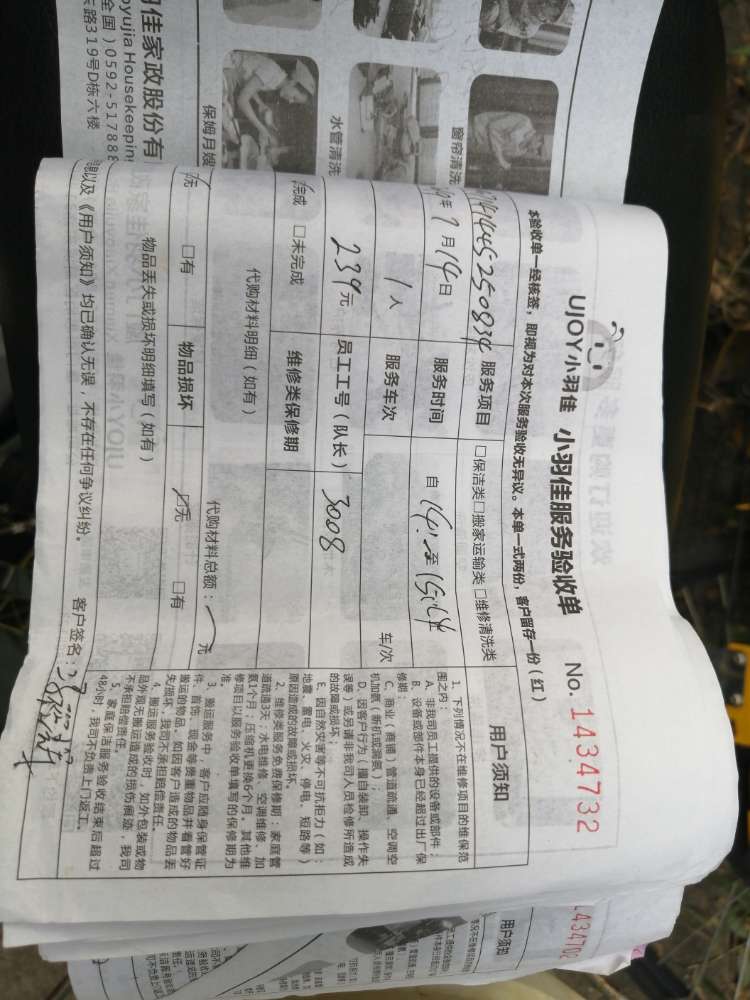 羽佳家政股份有
oyujia Housekeeping
全国）0592-517888
路319号D栋六楼
保姆月嫂
水管清洗
窗帘清洗
UJOY小羽佳 小羽佳服务验收单 No. 1434732
本验收单一经核签，即视为对本次服务验收无异议。本单一式两份，客户留存一份（红）
服务项目 □保洁类□搬家运输类□维修清洗类
年7月14日 服务时间 自 14: 至
1人 服务车次 车/次
239元 员工工号（队长） 3008
完成 □未完成 维修类保修期
代购材料明细（如有）
代购材料总额： 元
无 □有 物品损坏 ☑无 □有
物品丢失或损坏明细填写（如有）
以及《用户须知》均已确认无误，不存在任何争议纠纷。 客户签名：
用户须知
1、下列情况不在维修项目的维保范
围之内：
A、非我司员工提供的设备或部件；
B、设备或部件本身已经超过出厂保
修期；
C、商业（商铺）管道疏通、空调空
机加氟（新机或漏氟）；
D、因客户行为（擅自装卸、操作失
误等）或另请非我司人员维修所造成
的故障或损坏；
E、因自然灾害等不可抗拒力（如：
地震、雷电、火灾、停电、短路等）
原因造成的故障或损坏。
2、维修类服务免费保修期：家庭管
道疏通3天，水电维修、空调维修、加
氟1个月；压缩机更换6个月。其他维
修项目以服务验收单填写的保修期为
准。
3、搬运服务中，客户应随身保管证
件、首饰、现金等贵重物品并看管好
搬运的物品。如因客户造成的物品丢
失/损坏，我司不承担赔偿责任。
4、搬运服务验收时，如外包装或物
品外观无搬运造成的损伤痕迹，我司
不承担赔偿责任。
5、家庭保洁服务验收结束后超过
48小时，我司不负责上门返工。
用户须知